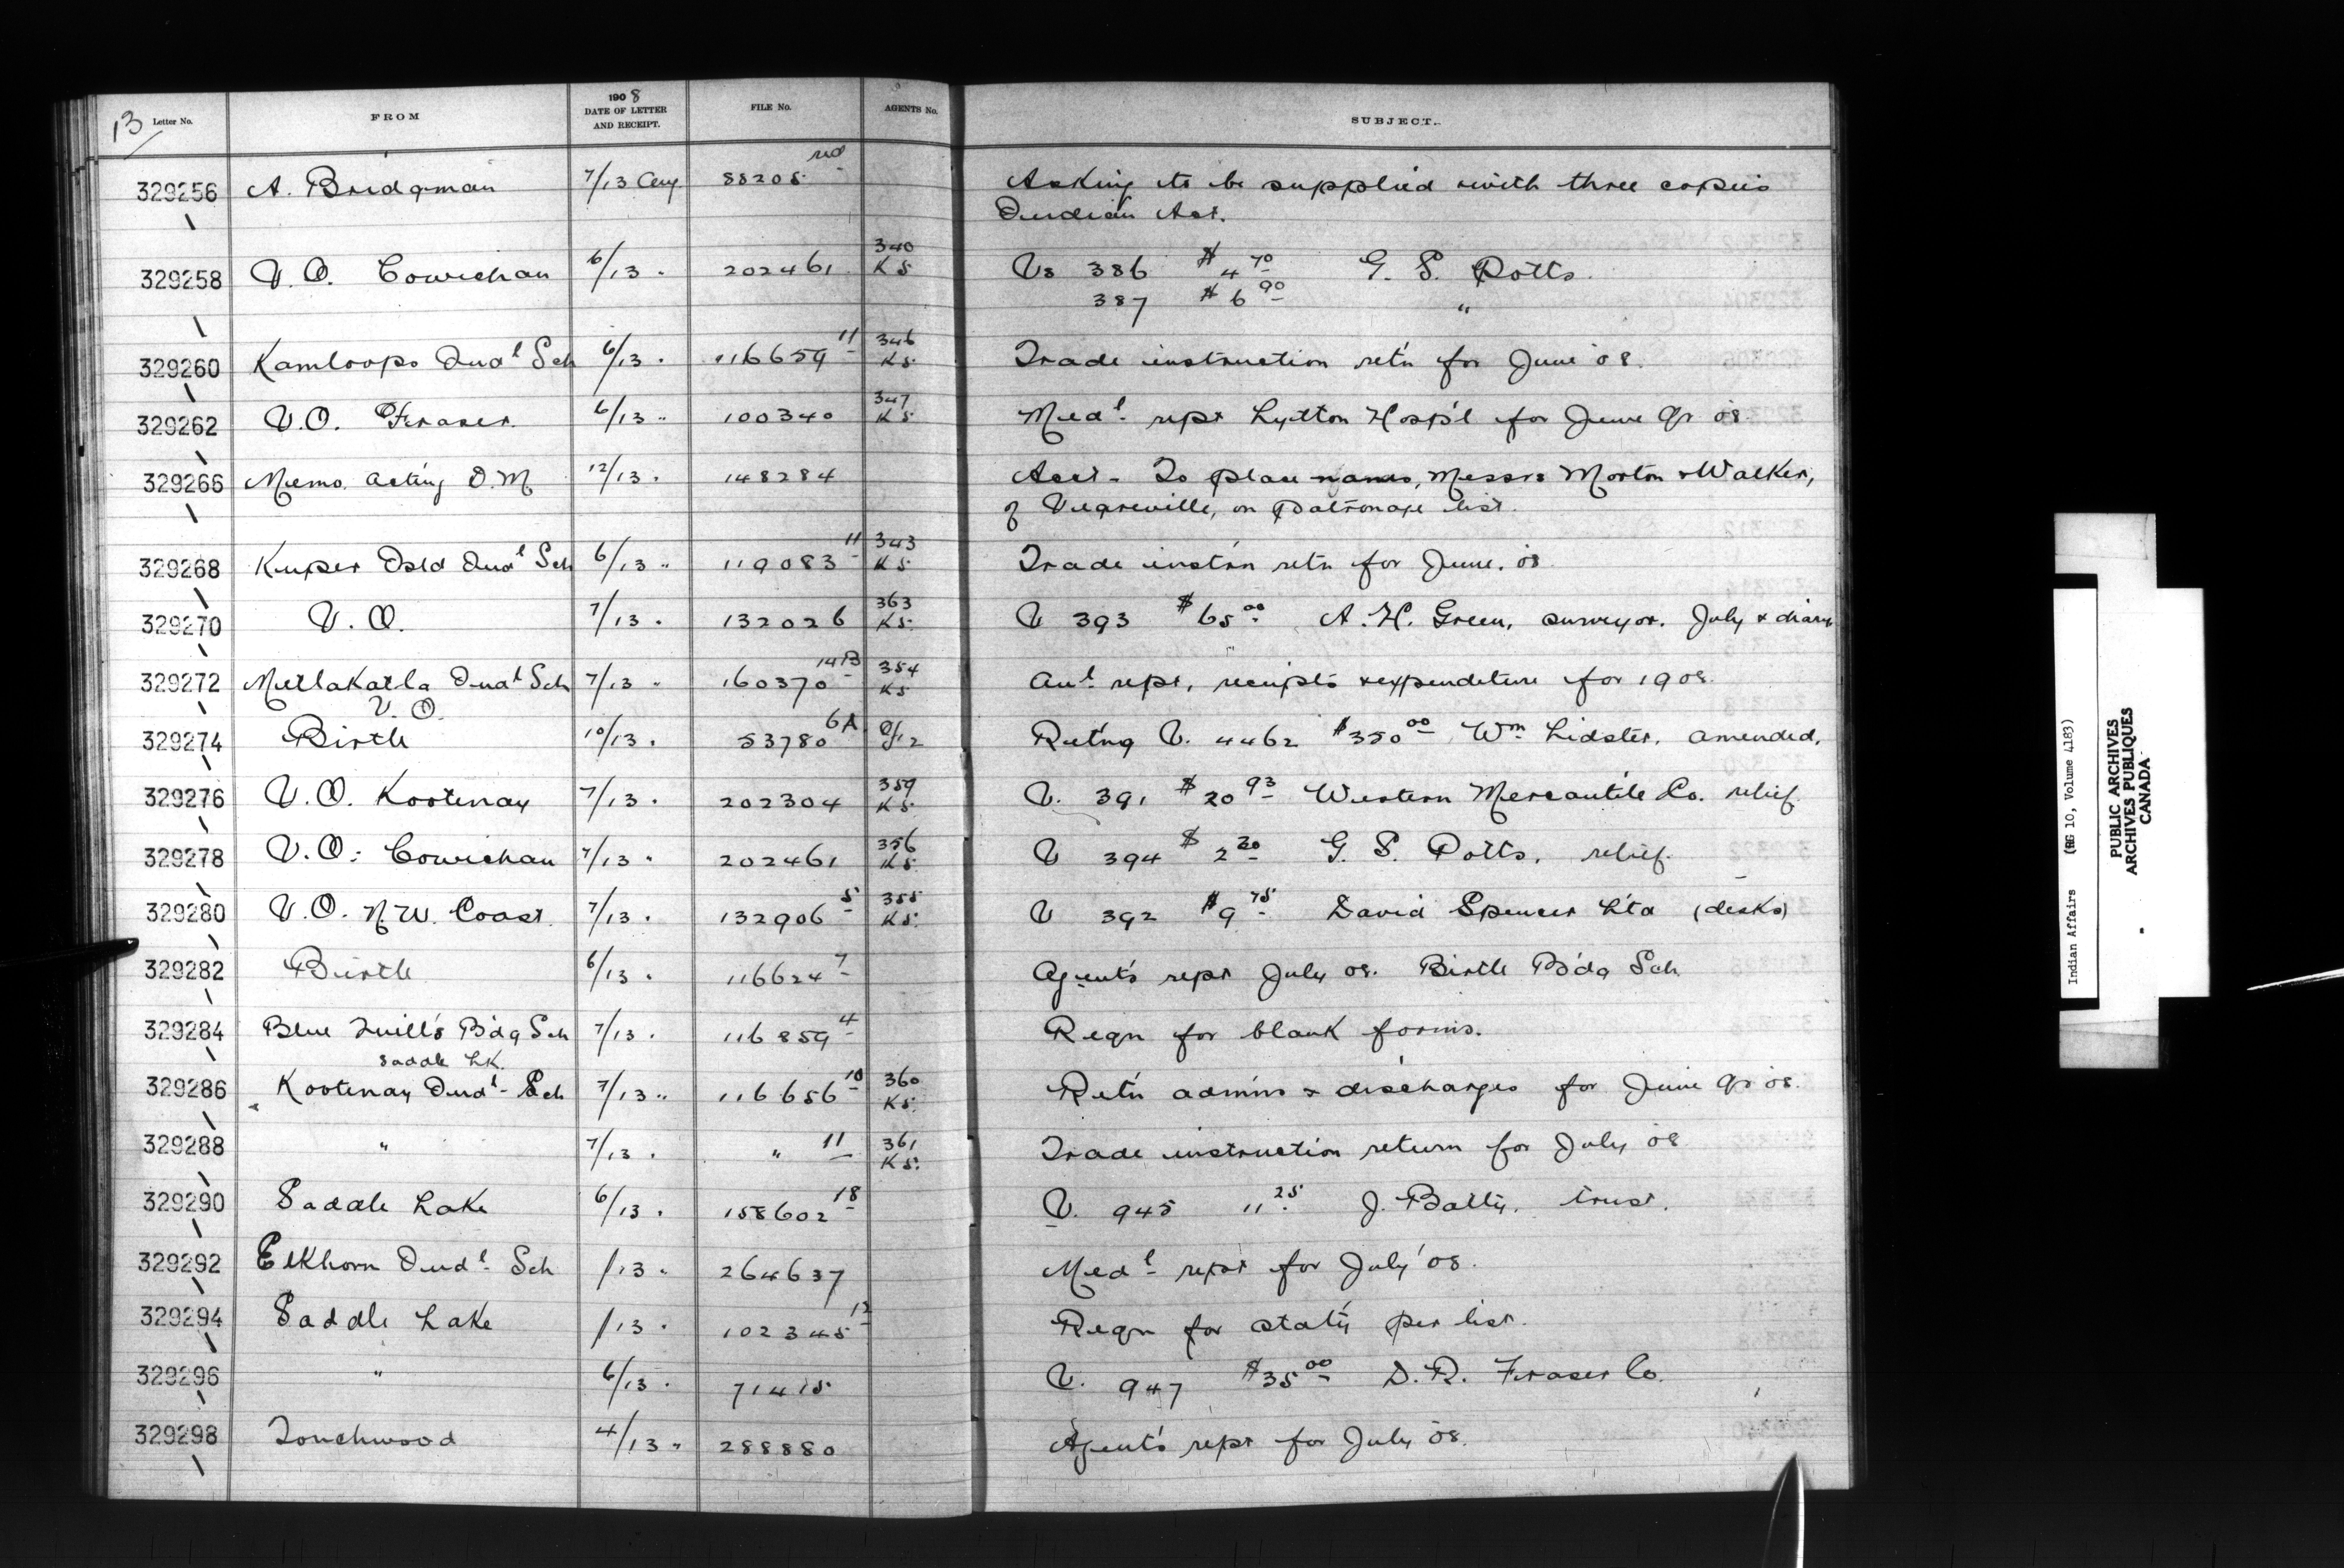 13 Letter No. FROM 1908 DATE OF LETTER AND RECEIPT. FILE No. AGENTS No. SUBJECT.
329256 A. Bridgman 7/13 Aug. 88208 Asking to be supplied with three copies
Indian Act.
340
329258 V.O. Cowichan 6/13 " 202461 K5 Vs 386 $4 70 G. S. Potts
387 $6 90 "
329260 Kamloops Indl Sch 6/13 " 116659 11 346 K5 Trade instruction ret'n for June '08.
329262 V.O. Fraser 6/13 " 100340 347 K5 Medl rept Lytton Hosp'l for June Qr 08
329266 Memo. Acting D.M 12/13 " 148284 Acct - To place names, Messrs Morton & Walker,
of Vegreville, on Patronage list.
329268 Kuper Isld Indl Sch 6/13 " 119083 11 343 K5 Trade inst'n retn for June. 08
329270 V.O. 7/13 " 132026 363 K5 V 393 $65 00 A. H. Green, surveyor. July & diary
329272 Metlakatla Indl Sch 7/13 " 160370 14B 354 K5 Anl rept, receipts & expenditure for 1908.
V.O.
329274 Birtle 10/13 " 53780 6A 9/12 Ret'ng V. 4462 $350 00 Wm Lidster. amended.
329276 V.O. Kootenay 7/13 " 202304 359 K5 V. 391 $20 93 Western Mercantile Co. relief.
329278 V.O. Cowichan 7/13 " 202461 356 K5 V 394 $2 20 G. S. Potts, relief.
329280 V.O. N.W. Coast. 7/13 " 132906 5 355 K5 V 392 $9 75 David Spencer Ltd (desks)
329282 Birtle 6/13 " 116624 7 Agent's rept July 08. Birtle B'dg Sch
329284 Blue Quill's B'dg Sch 7/13 " 116859 4 Reqn for blank forms.
Saddle Lk.
329286 Kootenay Indl Sch 7/13 " 116656 10 360 K5 Ret'n adm'ns & discharges for June Qr 08.
329288 " 7/13 " " 11 361 K5 Trade instruction return for July 08
329290 Saddle Lake 6/13 " 158602 18 V. 945 11 25 J. Batty. trust.
329292 Elkhorn Indl Sch /13 " 264637 Medl rept for July '08.
329294 Saddle Lake /13 " 102345 12 Reqn for stat'y per list.
329296 " 6/13 " 71415 V. 947 $35 00 D. R. Fraser Co.
329298 Touchwood 4/13 " 288880 Agent's rept for July 08.
Indian Affairs (RG 10, Volume 4183)
PUBLIC ARCHIVES
ARCHIVES PUBLIQUES
CANADA